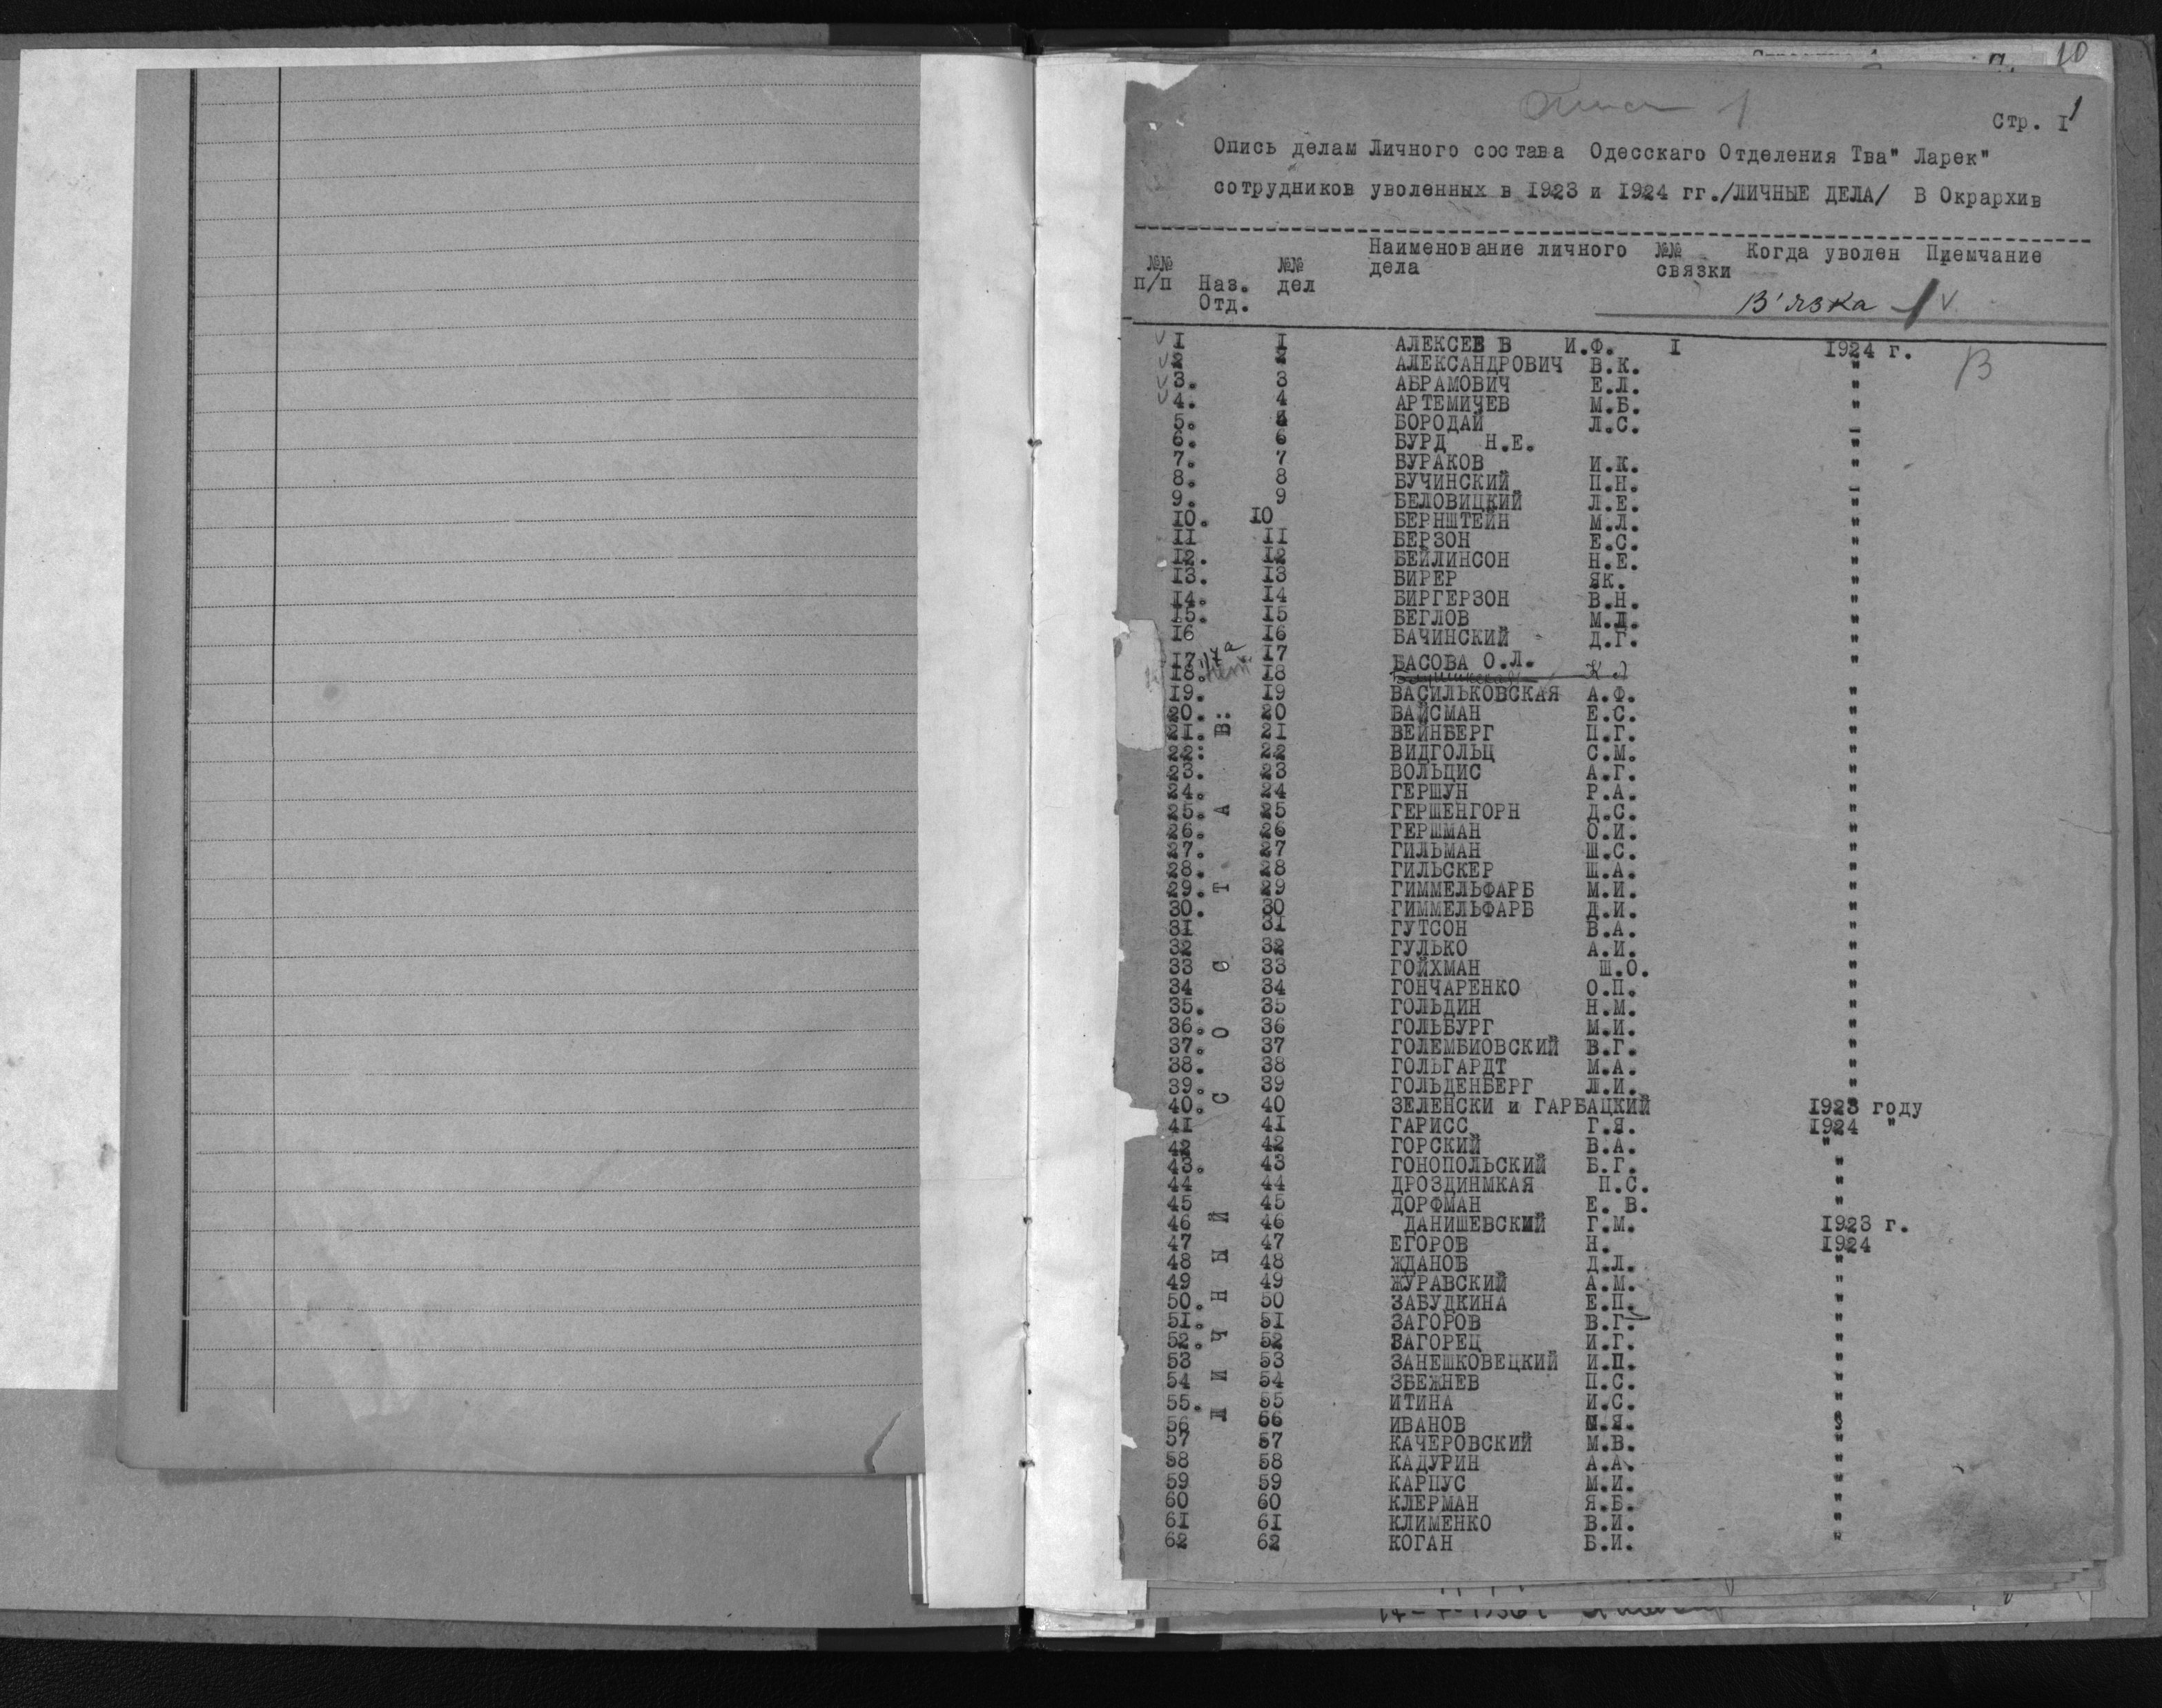 10
Опись 1
Стр. I 1
Опись делам Личного состава Одесскаго Отделения Тва" Ларек"
сотрудников уволенных в 1923 и 1924 гг./ЛИЧНЫЕ ДЕЛА/ В Окрархив
№№ п/п Наз. Отд. №№ дел Наименование личного дела №№ связки Когда уволен Пиемчание
В'язка 1 V
ЛИЧНЫЙ СОСТАВ:
V I I АЛЕКСЕЕ В И.Ф. I 1924 г.
V 2 2 АЛЕКСАНДРОВИЧ В.К. " В
V 3. 3 АБРАМОВИЧ Е.Л. "
V 4. 4 АРТЕМИЧЕВ М.Б. "
5. БОРОДАЙ Л.С. "
6. 6 БУРД Н.Е. "
7. 7 БУРАКОВ И.К. "
8. 8 БУЧИНСКИЙ П.Н. "
9. 9 БЕЛОВИЦКИЙ Л.Е. "
10. 10 БЕРНШТЕЙН М.Л. "
II II БЕРЗОН Е.С. "
I2. I2 БЕЙЛИНСОН Н.Е. "
I3. I3 БИРЕР ЯК. "
I4. I4 БИРГЕРЗОН В.Н. "
I5. I5 БЕГЛОВ "
I6 I6 БАЧИНСКИЙ Д.Г. "
I7 I7 БАСОВА О.Л. "
I8. I8
I9. I9 ВАСИЛЬКОВСКАЯ А.Ф. "
20. 20 ВАЙСМАН Е.С. "
21. 21 ВЕЙНБЕРГ П.Г. "
22: 22 ВИДГОЛЬЦ С.М. "
23. 23 ВОЛЬЦИС А.Г. "
24. 24 ГЕРШУН Р.А. "
25. 25 ГЕРШЕНГОРН Д.С. "
26. 26 ГЕРШМАН О.И. "
27. 27 ГИЛЬМАН Ш.С. "
28. 28 ГИЛЬСКЕР Ш.А. "
29. 29 ГИММЕЛЬФАРБ М.И. "
30. 30 ГИММЕЛЬФАРБ Д.И. "
3I 3I ГУТСОН В.А. "
32 32 ГУЛЬКО А.И. "
33 33 ГОЙХМАН Ш.О. "
34 34 ГОНЧАРЕНКО О.П. "
35. 35 ГОЛЬДИН Н.М. "
36. 36 ГОЛЬБУРГ М.И. "
37. 37 ГОЛЕМБИОВСКИЙ В.Г. "
38. 38 ГОЛЬГАРДТ М.А. "
39. 39 ГОЛЬДЕНБЕРГ Л.И. "
40. 40 ЗЕЛЕНСКИ и ГАРБАЦКИЙ 1923 году
4I 4I ГАРИСС Г.Я. 1924 "
42 42 ГОРСКИЙ В.А. "
43. 43 ГОНОПОЛЬСКИЙ Б.Г. "
44 44 ДРОЗДИНМКАЯ П.С. "
45 45 ДОРФМАН Е. В. "
46 46 ДАНИШЕВСКИЙ Г.М. 1923 г.
47 47 ЕГОРОВ Н. 1924
48 48 ЖДАНОВ Д.Л. "
49 49 ЖУРАВСКИЙ А.М. "
50. 50 ЗАБУДКИНА Е.П. "
51. 51 ЗАГОРОВ В.Г. "
52. 52 ЗАГОРЕЦ И.Г. "
53 53 ЗАНЕШКОВЕЦКИЙ И.П. "
54 54 ЗБЕЖНЕВ П.С. "
55. 55 ИТИНА И.С. "
56 56 ИВАНОВ М.Я. "
57 57 КАЧЕРОВСКИЙ М.В. "
58 58 КАДУРИН А.А. "
59 59 КАРПУС М.И. "
60 60 КЛЕРМАН Я.Б. "
6I 6I КЛИМЕНКО В.И. "
62 62 КОГАН Б.И. "